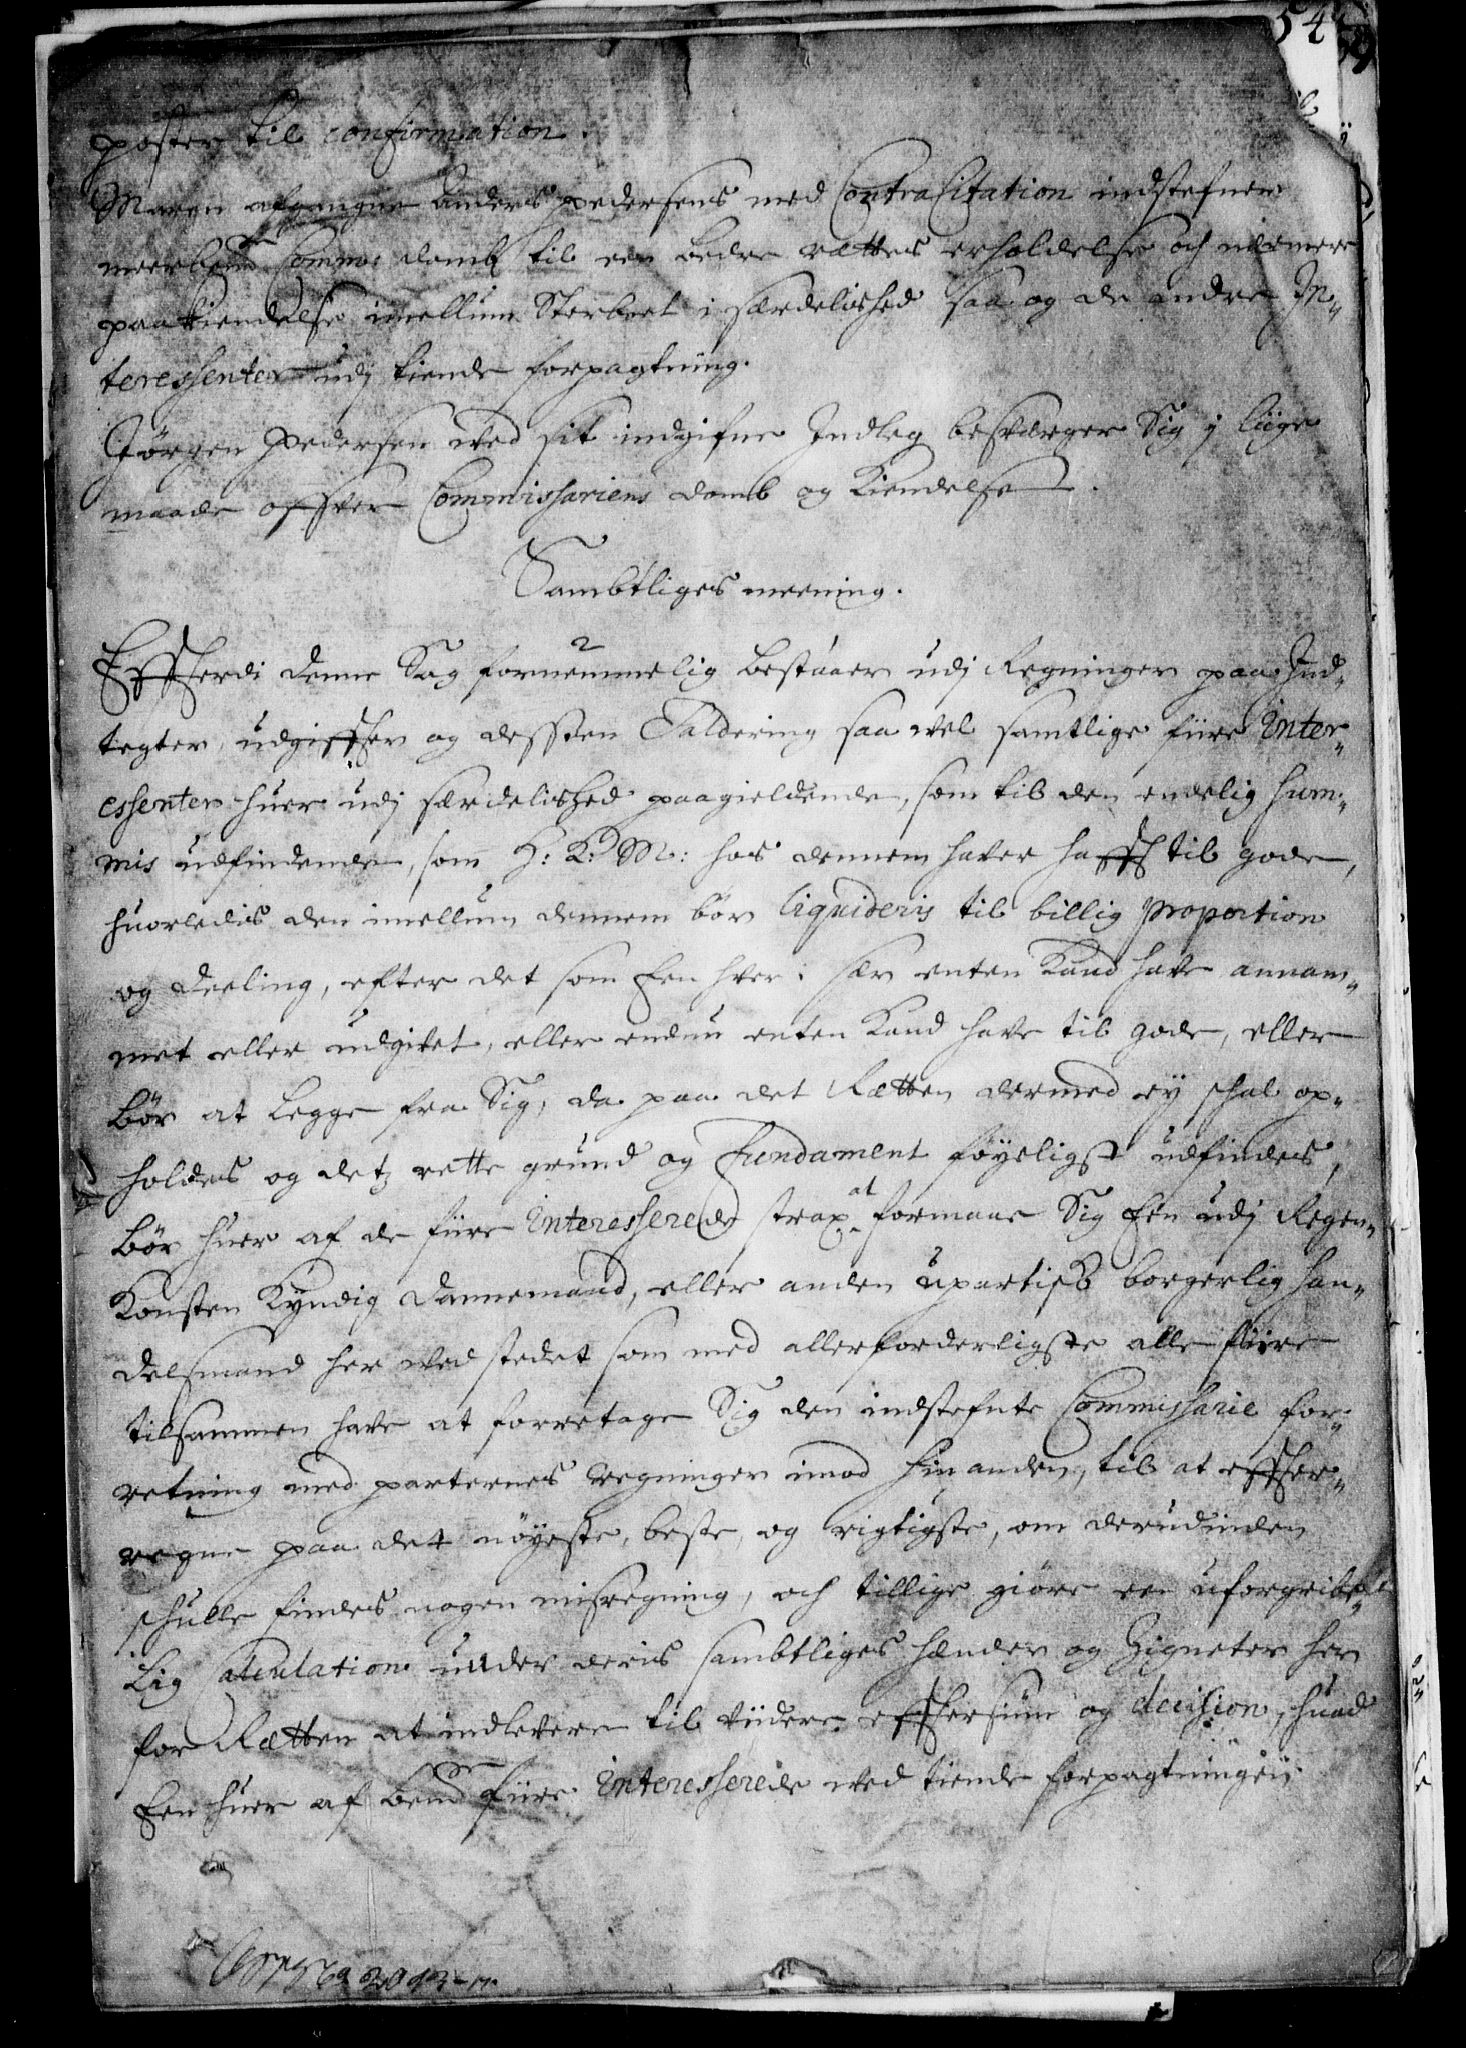 54
poster til confirmation.
Maren afgangne Anders Pedersens med Contra Citation indstefner
meerbemte Commis: domb til een bedre rettes erholdelse och nærmere
paakiendelse imellum Sterboet i særdelished saa og de andre In-
teressenter udj tiende forpagtning.
Jørgen Pedersen ved sit indgifne Indleg besværger Sig j liige
maade offver Commissariens domb og Kiendelse.
Sambtliges meening.
Effterdi denne Sag fornemmelig bestaaer udj Regninger paa Ind-
tegter, udgiffter og dessen Valdering saa vel samtlige fiire Inter-
essenter huer udj særdelished paagieldende, som til den endelig sum-
mis udfindende, som H: K: M: hos dennem haver hafft til gode,
huorledis den imellum dennem bør liquideris til billig proportion
og deeling, efter det som Een hver i sær enten Kand have annam-
met eller udgivet, eller endnu enten Kand have til gode, eller
bør at legge fra Sig, da paa det Retten dermed ey schal op-
holdes og detz rette grund og Fundament føyeligst udfindes,
bør huer af de fiire Interesserede strax at formaae Sig Een udj Regen-
Konsten Kyndig dannemand, eller anden upartisk borgerlig Han-
delsmand her ved stedet som med allerforderligste alle fiire
tilsammen have at forretage Sig den indstefnte Commissarie for-
retning med parternes regninger imod hin anden, til at effter-
regne paa det nøyeste, beste og rigtigste, om derudinden
schulle findes nogen misregning, och tillige giøre een uforgribe-
lig Calculation under deris sambtliges hender og Zigneter her
for Retten at indlevere til viidere efftersiun og decision, huad
Een huer af bemte fiire Interesserede ved tiende forpagtningen